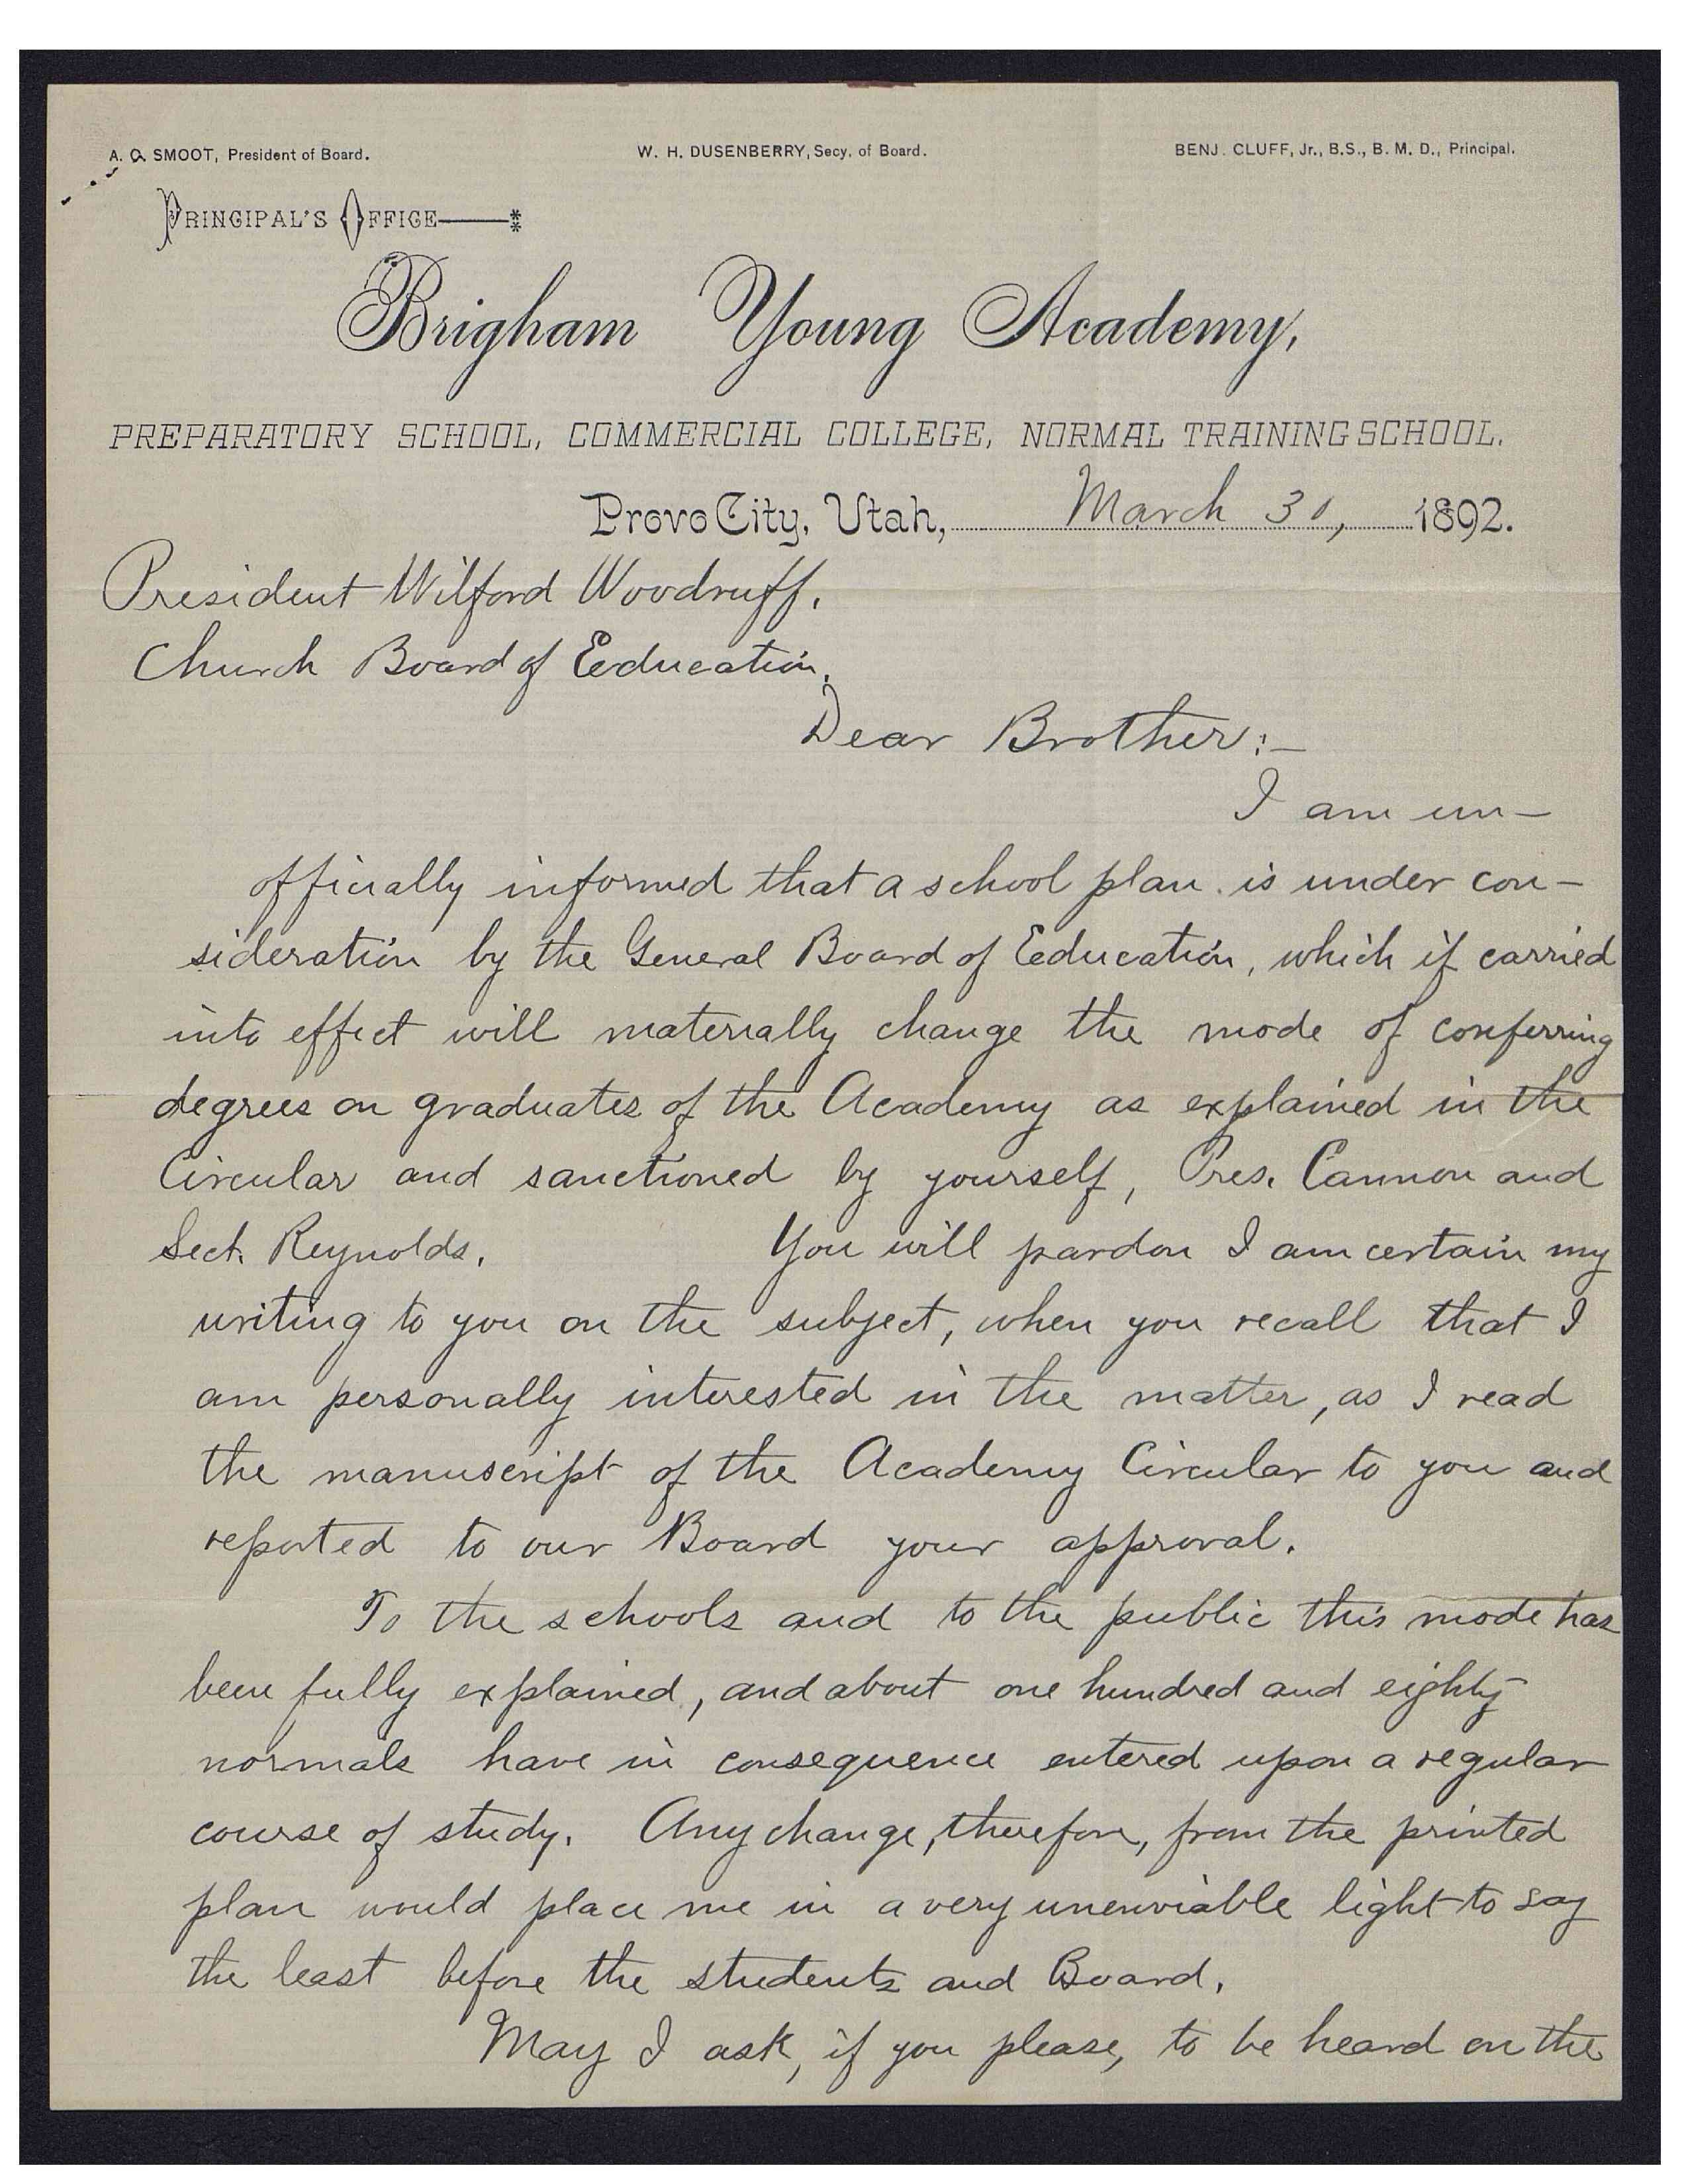 A. O. SMOOT, President of Board.
W. H. DUSENBERRY, Secy. of Board.
BENJ. CLUFF, Jr., B.S., B. M. D., Principal.
PRINCIPAL'S OFFICE
Brigham Young Academy,
PREPARATORY SCHOOL, COMMERCIAL COLLEGE, NORMAL TRAINING SCHOOL.
Provo City, Utah, March 30, 1892.
President Wilford Woodruff.
Church Board of Eeducation.
Dear Brother:—
I am un-
officially informed that a school plan is under con-
sideration by the General Board of Eeducation, which if carried
into effect will materially change the mode of conferring
degrees on graduates of the Academy as explained in the
Circular and sanctioned by yourself, Pres. Cannon and
Sect. Reynolds. You will pardon I am certain my
writing to you on the subject, when you recall that I
am personally interested in the matter, as I read
the manuscript of the Academy Circular to you and
reported to our Board your approval.
To the schools and to the public this mode has
been fully explained, and about one hundred and eighty
normals have in consequence entered upon a regular
course of study. Any change, therefore, from the printed
plan would place me in a very unenviable light to say
the least before the students and Board.
May I ask, if you please, to be heard on the